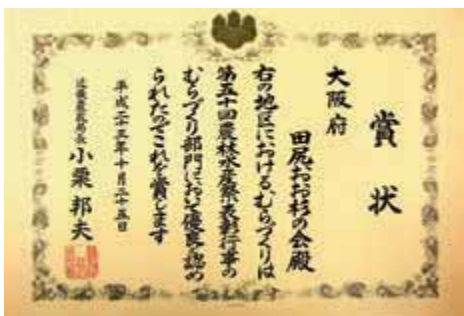 賞状
大阪府
田尻おお杉の会殿
右の地区におけるむらづくりは
第五十回農林水産祭表彰行事の
むらづくり部門において優良と認め
られたのでこれを賞します
平成二十三年十月二十五日
近畿農政局長 小栗邦夫